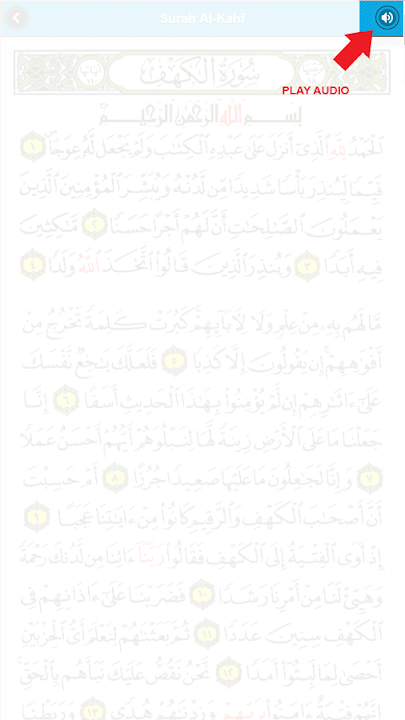 Surah Al-Kahf
PLAY AUDIO
سُورَةُ الْكَهْفِ
بِسْمِ اللَّهِ الرَّحْمَٰنِ الرَّحِيمِ
الْحَمْدُ لِلَّهِ الَّذِي أَنْزَلَ عَلَىٰ عَبْدِهِ الْكِتَابَ وَلَمْ يَجْعَلْ لَهُ عِوَجًا ١
قَيِّمًا لِيُنْذِرَ بَأْسًا شَدِيدًا مِنْ لَدُنْهُ وَيُبَشِّرَ الْمُؤْمِنِينَ الَّذِينَ
يَعْمَلُونَ الصَّالِحَاتِ أَنَّ لَهُمْ أَجْرًا حَسَنًا ٢ مَاكِثِينَ
فِيهِ أَبَدًا ٣ وَيُنْذِرَ الَّذِينَ قَالُوا اتَّخَذَ اللَّهُ وَلَدًا ٤
مَا لَهُمْ بِهِ مِنْ عِلْمٍ وَلَا لِآبَائِهِمْ كَبُرَتْ كَلِمَةً تَخْرُجُ مِنْ
أَفْوَاهِهِمْ إِنْ يَقُولُونَ إِلَّا كَذِبًا ٥ فَلَعَلَّكَ بَاخِعٌ نَفْسَكَ
عَلَىٰ آثَارِهِمْ إِنْ لَمْ يُؤْمِنُوا بِهَٰذَا الْحَدِيثِ أَسَفًا ٦ إِنَّا
جَعَلْنَا مَا عَلَى الْأَرْضِ زِينَةً لَهَا لِنَبْلُوَهُمْ أَيُّهُمْ أَحْسَنُ عَمَلًا
٧ وَإِنَّا لَجَاعِلُونَ مَا عَلَيْهَا صَعِيدًا جُرُزًا ٨ أَمْ حَسِبْتَ
أَنَّ أَصْحَابَ الْكَهْفِ وَالرَّقِيمِ كَانُوا مِنْ آيَاتِنَا عَجَبًا ٩
إِذْ أَوَى الْفِتْيَةُ إِلَى الْكَهْفِ فَقَالُوا رَبَّنَا آتِنَا مِنْ لَدُنْكَ رَحْمَةً
وَهَيِّئْ لَنَا مِنْ أَمْرِنَا رَشَدًا ١٠ فَضَرَبْنَا عَلَىٰ آذَانِهِمْ فِي
الْكَهْفِ سِنِينَ عَدَدًا ١١ ثُمَّ بَعَثْنَاهُمْ لِنَعْلَمَ أَيُّ الْحِزْبَيْنِ
أَحْصَىٰ لِمَا لَبِثُوا أَمَدًا ١٢ نَحْنُ نَقُصُّ عَلَيْكَ نَبَأَهُمْ بِالْحَقِّ
إِنَّهُمْ فِتْيَةٌ آمَنُوا بِرَبِّهِمْ وَزِدْنَاهُمْ هُدًى ١٣ وَرَبَطْنَا